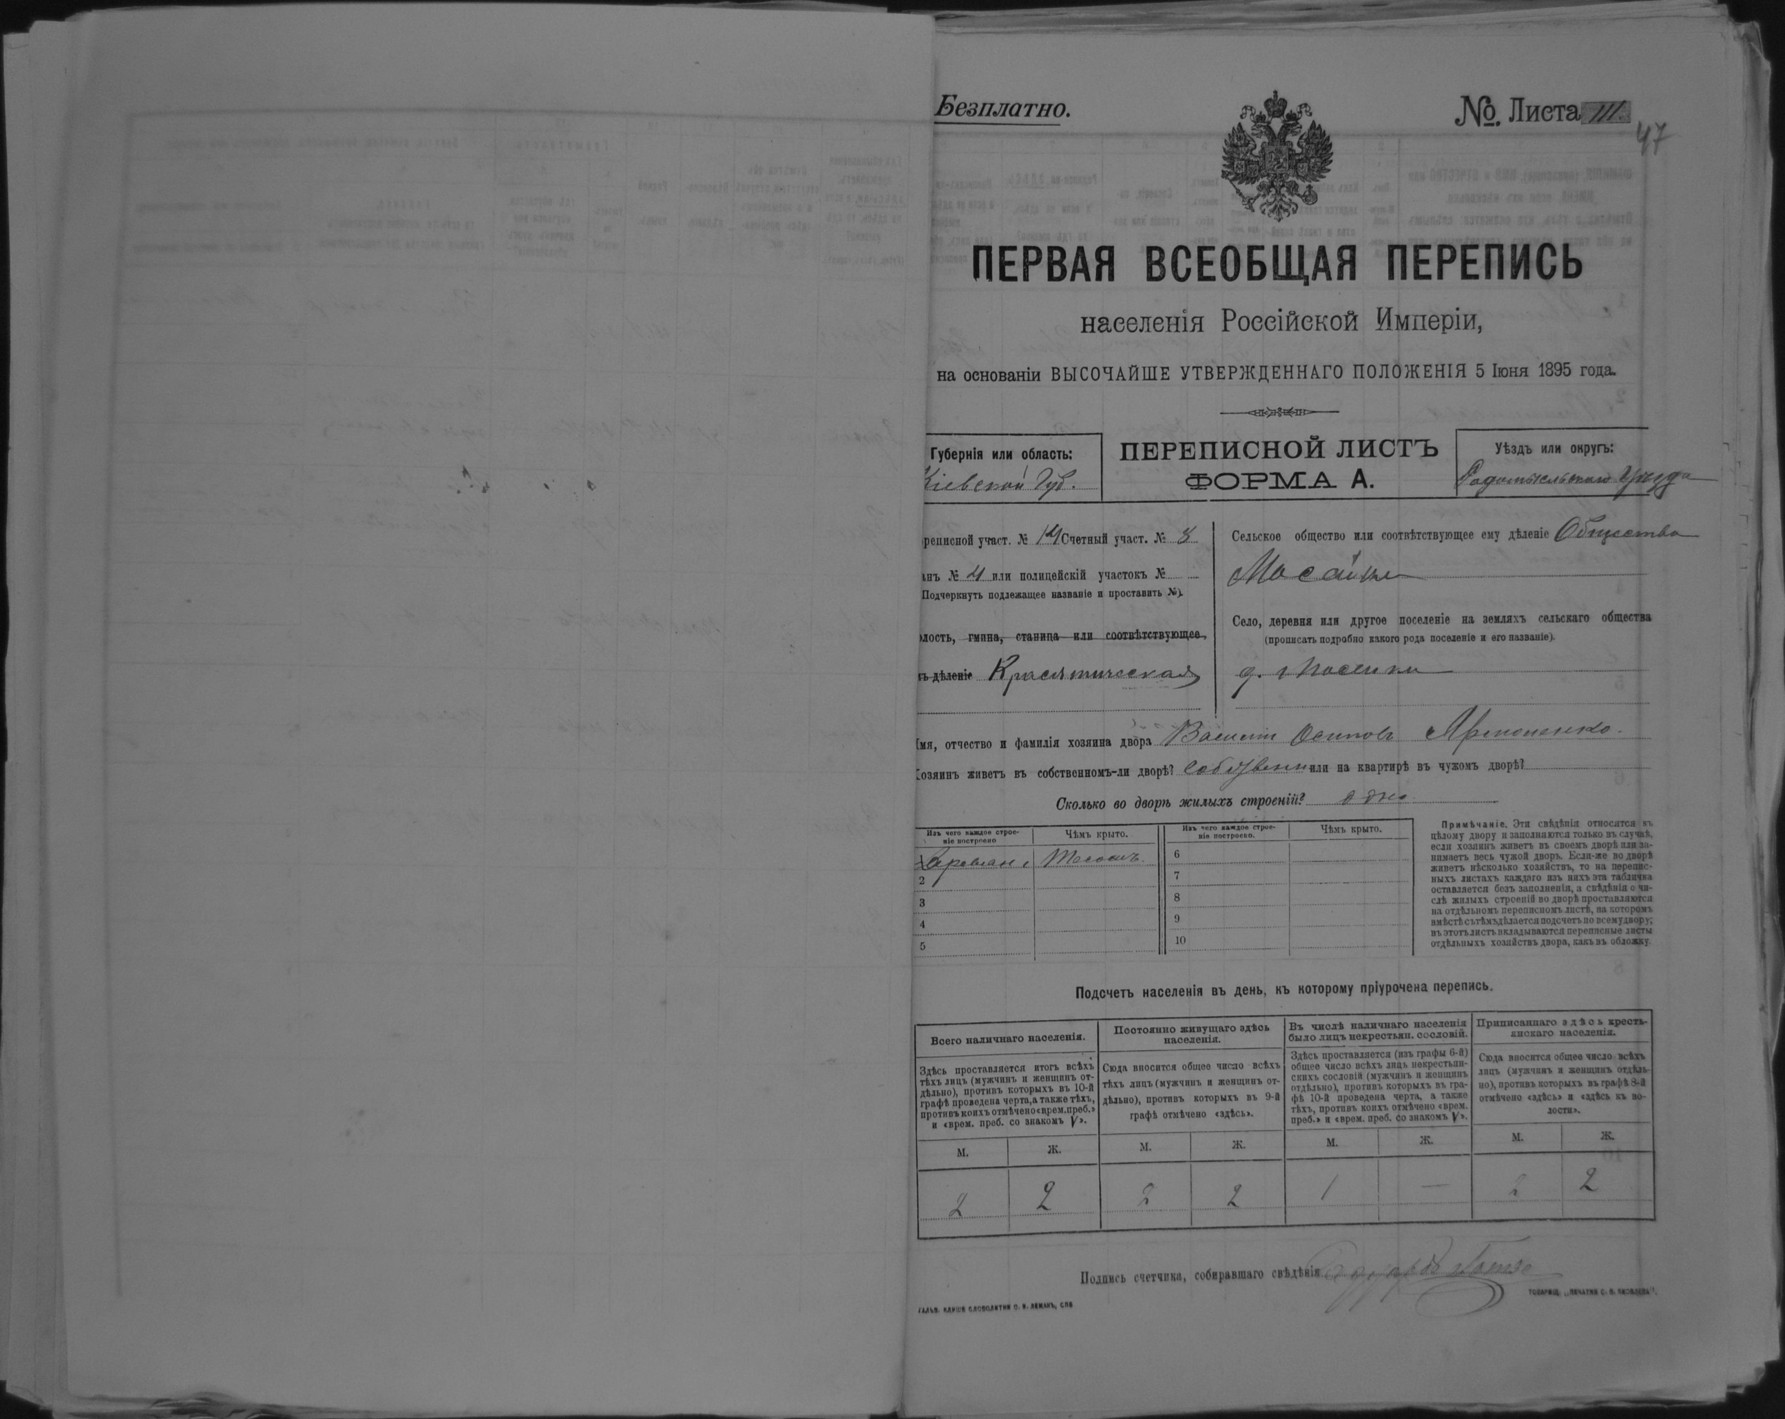 Безплатно.
№. Листа 111.
47
ПЕРВАЯ ВСЕОБЩАЯ ПЕРЕПИСЬ
населенія Россійской Имперіи,
на основаніи ВЫСОЧАЙШЕ УТВЕРЖДЕННАГО ПОЛОЖЕНІЯ 5 Іюня 1895 года.
Губернія или область:
Кіевской Губ.
ПЕРЕПИСНОЙ ЛИСТЪ
ФОРМА А.
Уѣздъ или округъ:
Радомысльскаго Уѣзда
реписной участ. № 14 Счетный участ. № 3
анъ № 4 или полицейскій участокъ №
Подчеркнуть подлежащее названіе и проставить №).
лость, гмина, станица или соотвѣтствующее
ъ дѣленіе Красятическая
Сельское общество или соотвѣтствующее ему дѣленіе Общества
Мосейки
Село, деревня или другое поселеніе на земляхъ сельскаго общества
(прописать подробно какого рода поселеніе и его названіе).
д. Мосейки
Имя, отчество и фамилія хозяина двора Василій Осиповъ
Хозяинъ живетъ въ собственномъ-ли дворѣ? собствени или на квартирѣ въ чужомъ дворѣ?
Сколько во дворѣ жилыхъ строеній? одно
Изъ чего каждое строе-
ніе построено
Чѣмъ крыто.
Изъ чего каждое строе-
ніе построено.
Чѣмъ крыто.
6
2
7
3
8
4
9
5
10
Примѣчаніе. Эти свѣдѣнія относятся къ
цѣлому двору и заполняются только въ случаѣ,
если хозяинъ живетъ въ своемъ дворѣ или за-
нимаетъ весь чужой дворъ. Если-же во дворѣ
живетъ нѣсколько хозяйствъ, то на перепис-
ныхъ листахъ каждаго изъ нихъ эта табличка
оставляется безъ заполненія, а свѣдѣнія о чи-
слѣ жилыхъ строеній во дворѣ проставляются
на отдѣльномъ переписномъ листѣ, на которомъ
вмѣстѣ съ тѣмъ дѣлается подсчетъ по всему двору;
въ этотъ листъ вкладываются переписные листы
отдѣльныхъ хозяйствъ двора, какъ въ обложку.
Подсчетъ населенія въ день, къ которому пріурочена перепись.
Всего наличнаго населенія.
Здѣсь проставляется итогъ всѣхъ
тѣхъ лицъ (мужчинъ и женщинъ от-
дѣльно), противъ которыхъ въ 10-й
графѣ проведена черта, а также тѣхъ,
противъ коихъ отмѣчено «врем. преб.»
и «врем. преб. со знакомъ V».
Постоянно живущаго здѣсь
населенія.
Сюда вносится общее число всѣхъ
тѣхъ лицъ (мужчинъ и женщинъ от-
дѣльно), противъ которыхъ въ 9-й
графѣ отмѣчено «здѣсь».
Въ числѣ наличнаго населенія
было лицъ некрестьян. сословій.
Здѣсь проставляется (изъ графы 6-й)
общее число всѣхъ лицъ некрестьян-
скихъ сословій (мужчинъ и женщинъ
отдѣльно), противъ которыхъ въ гра-
фѣ 10-й проведена черта, а также
тѣхъ, противъ коихъ отмѣчено «врем.
преб.» и «врем. преб. со знакомъ V».
Приписаннаго здѣсь кресть-
янскаго населенія.
Сюда вносится общее число всѣхъ
лицъ (мужчинъ и женщинъ отдѣль-
но), противъ которыхъ въ графѣ 8-й
отмѣчено «здѣсь» и «здѣсь въ во-
лости».
М. Ж. М. Ж. М. Ж. М. Ж.
2 2 2 2 1 — 2 2
Подпись счетчика, собиравшаго свѣдѣнія
ГАЛЬВ. КЛИШЕ СЛОВОЛИТНИ О. И. ЛЕМАНЪ, СПБ
ТОВАРИЩ. „ПЕЧАТНЯ С. П. ЯКОВЛЕВА".